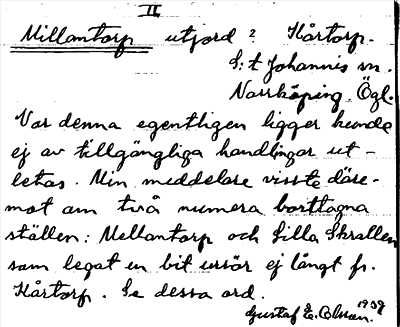 II
Millantorp utjord ? Kårtorp.
S:t Johannis sn.
Norrköping Ögl.
Var denna egentligen ligger kunde
ej av tillgängliga handlingar ut-
letas. Min meddelare visste däre-
mot om två numera borttagna
ställen: Mellantorp och Lilla Skrallen
som legat en bit ej långt fr.
Kårtorp. Se dessa ord.
Gustaf E. Olsson. 1939